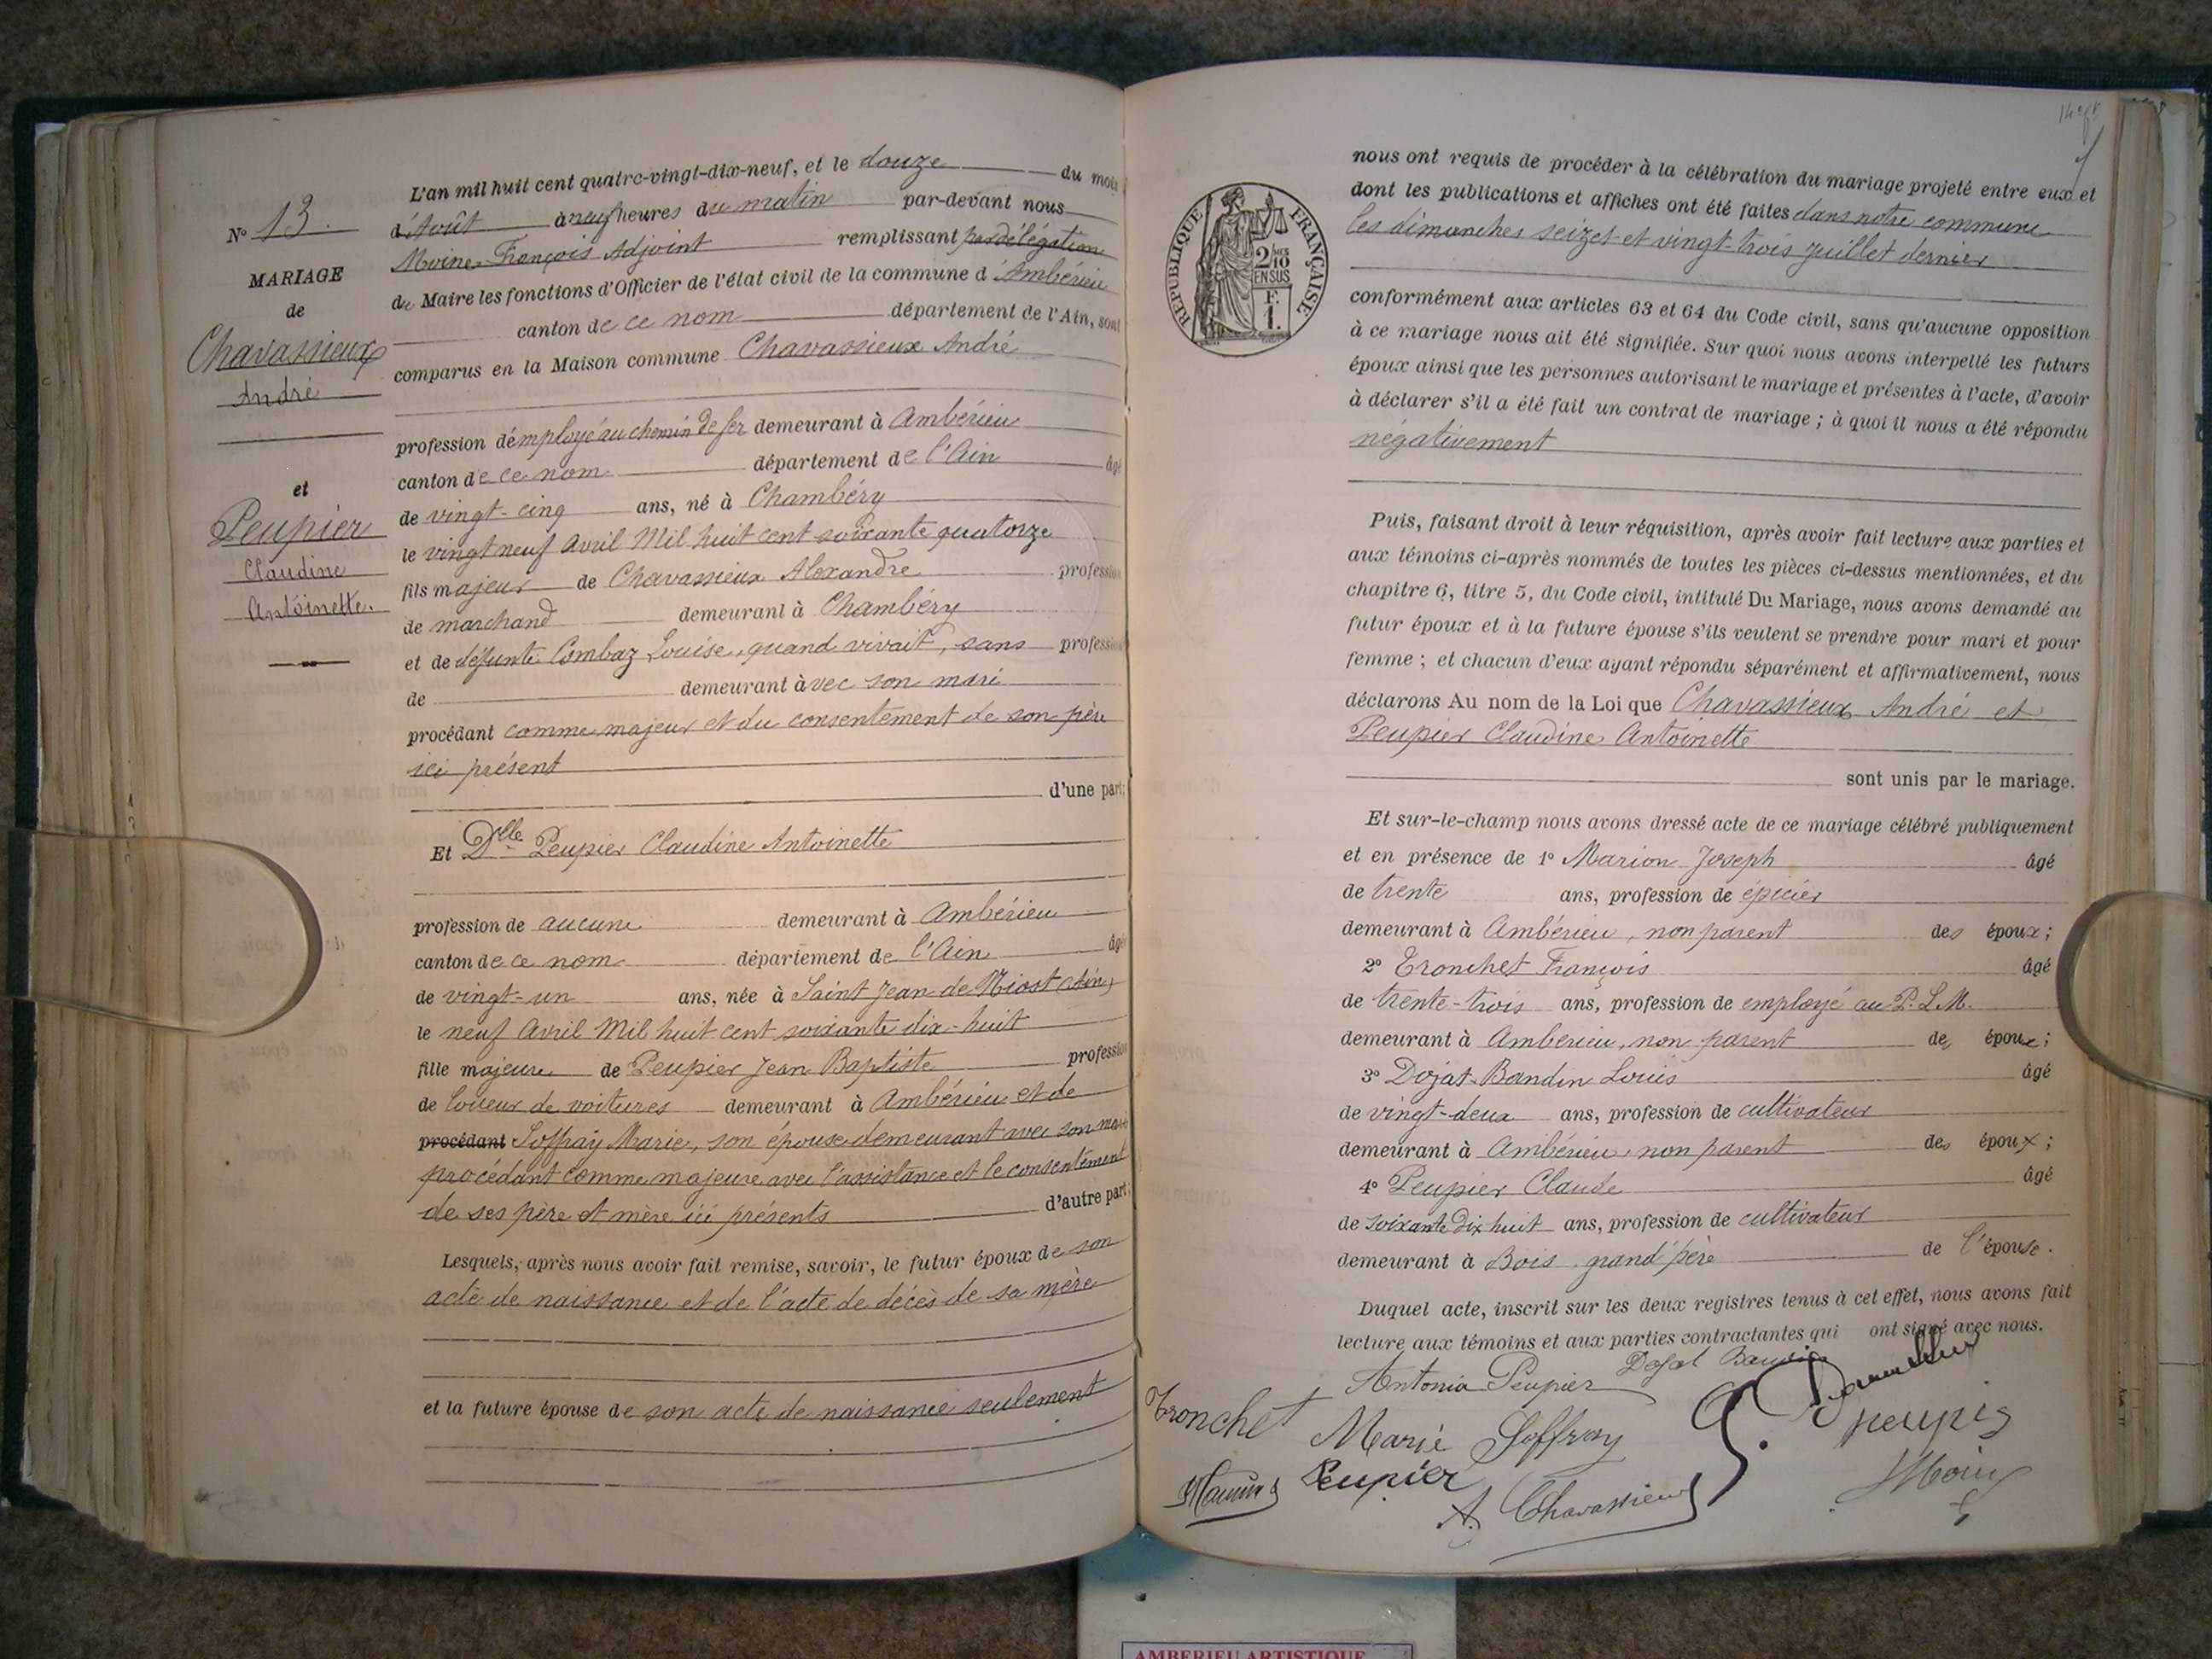 N° 13.
MARIAGE
de
Chavassieux
André
et
Peupier
Claudine
Antoinette.
L'an mil huit cent quatre-vingt-dix-neuf, et le douze du mois
d'Août à neuf heures du matin par-devant nous
Moine François Adjoint remplissant par délégation
du Maire les fonctions d'Officier de l'état civil de la commune d'Ambérieu
canton de ce nom département de l'Ain, sont
comparus en la Maison commune Chavassieux André
profession d'employé au chemin de fer demeurant à Ambérieu
canton de ce nom département de l'Ain âgé
de vingt-cinq ans, né à Chambéry
le vingt neuf Avril Mil huit cent soixante quatorze
fils majeur de Chavassieux Alexandre profession
de marchand demeurant à Chambéry
et de défunte Combaz Louise, quand vivait, sans profession
de demeurant avec son mari
procédant comme majeur et du consentement de son père
ici présent
d'une part;
Et Dlle Peupier Claudine Antoinette
profession de aucune demeurant à Ambérieu
canton de ce nom département de l'Ain âgé
de vingt-un ans, née à Saint Jean de Niost (Ain)
le neuf Avril Mil huit cent soixante dix-huit
fille majeure de Peupier Jean Baptiste profession
de loueur de voitures demeurant à Ambérieu et de
procédant Joffray Marie, son épouse demeurant avec son mari
procédant comme majeure avec l'assistance et le consentement
de ses père et mère ici présents d'autre part.
Lesquels, après nous avoir fait remise, savoir, le futur époux de son
acte de naissance et de l'acte de décès de sa mère
et la future épouse de son acte de naissance seulement
REPUBLIQUE FRANÇAISE
2/10 EN SUS
F. 1.
nous ont requis de procéder à la célébration du mariage projeté entre eux et
dont les publications et affiches ont été faites dans notre commune
les dimanches seize et vingt-trois juillet dernier
conformément aux articles 63 et 64 du Code civil, sans qu'aucune opposition
à ce mariage nous ait été signifiée. Sur quoi nous avons interpellé les futurs
époux ainsi que les personnes autorisant le mariage et présentes à l'acte, d'avoir
à déclarer s'il a été fait un contrat de mariage ; à quoi il nous a été répondu
négativement
Puis, faisant droit à leur réquisition, après avoir fait lecture aux parties et
aux témoins ci-après nommés de toutes les pièces ci-dessus mentionnées, et du
chapitre 6, titre 5, du Code civil, intitulé Du Mariage, nous avons demandé au
futur époux et à la future épouse s'ils veulent se prendre pour mari et pour
femme ; et chacun d'eux ayant répondu séparément et affirmativement, nous
déclarons Au nom de la Loi que Chavassieux André et
Peupier Claudine Antoinette
sont unis par le mariage.
Et sur-le-champ nous avons dressé acte de ce mariage célébré publiquement
et en présence de 1° Marion Joseph âgé
de trente ans, profession de épicier
demeurant à Ambérieu, non parent des époux ;
2° Tronchet François âgé
de trente-trois ans, profession de employé au P.L.M.
demeurant à Ambérieu, non parent des époux ;
3° Dojat-Bandin Louis âgé
de vingt-deux ans, profession de cultivateur
demeurant à Ambérieu, non parent des époux ;
4° Peupier Claude âgé
de soixante dix huit ans, profession de cultivateur
demeurant à Bois grand'père de l'épouse.
Duquel acte, inscrit sur les deux registres tenus à cet effet, nous avons fait
lecture aux témoins et aux parties contractantes qui ont signé avec nous.
Antonia Peupier
Tronchet
Marie Joffray
Peupier
A. Chavassieux
AMBERIEU ARTISTIQUE